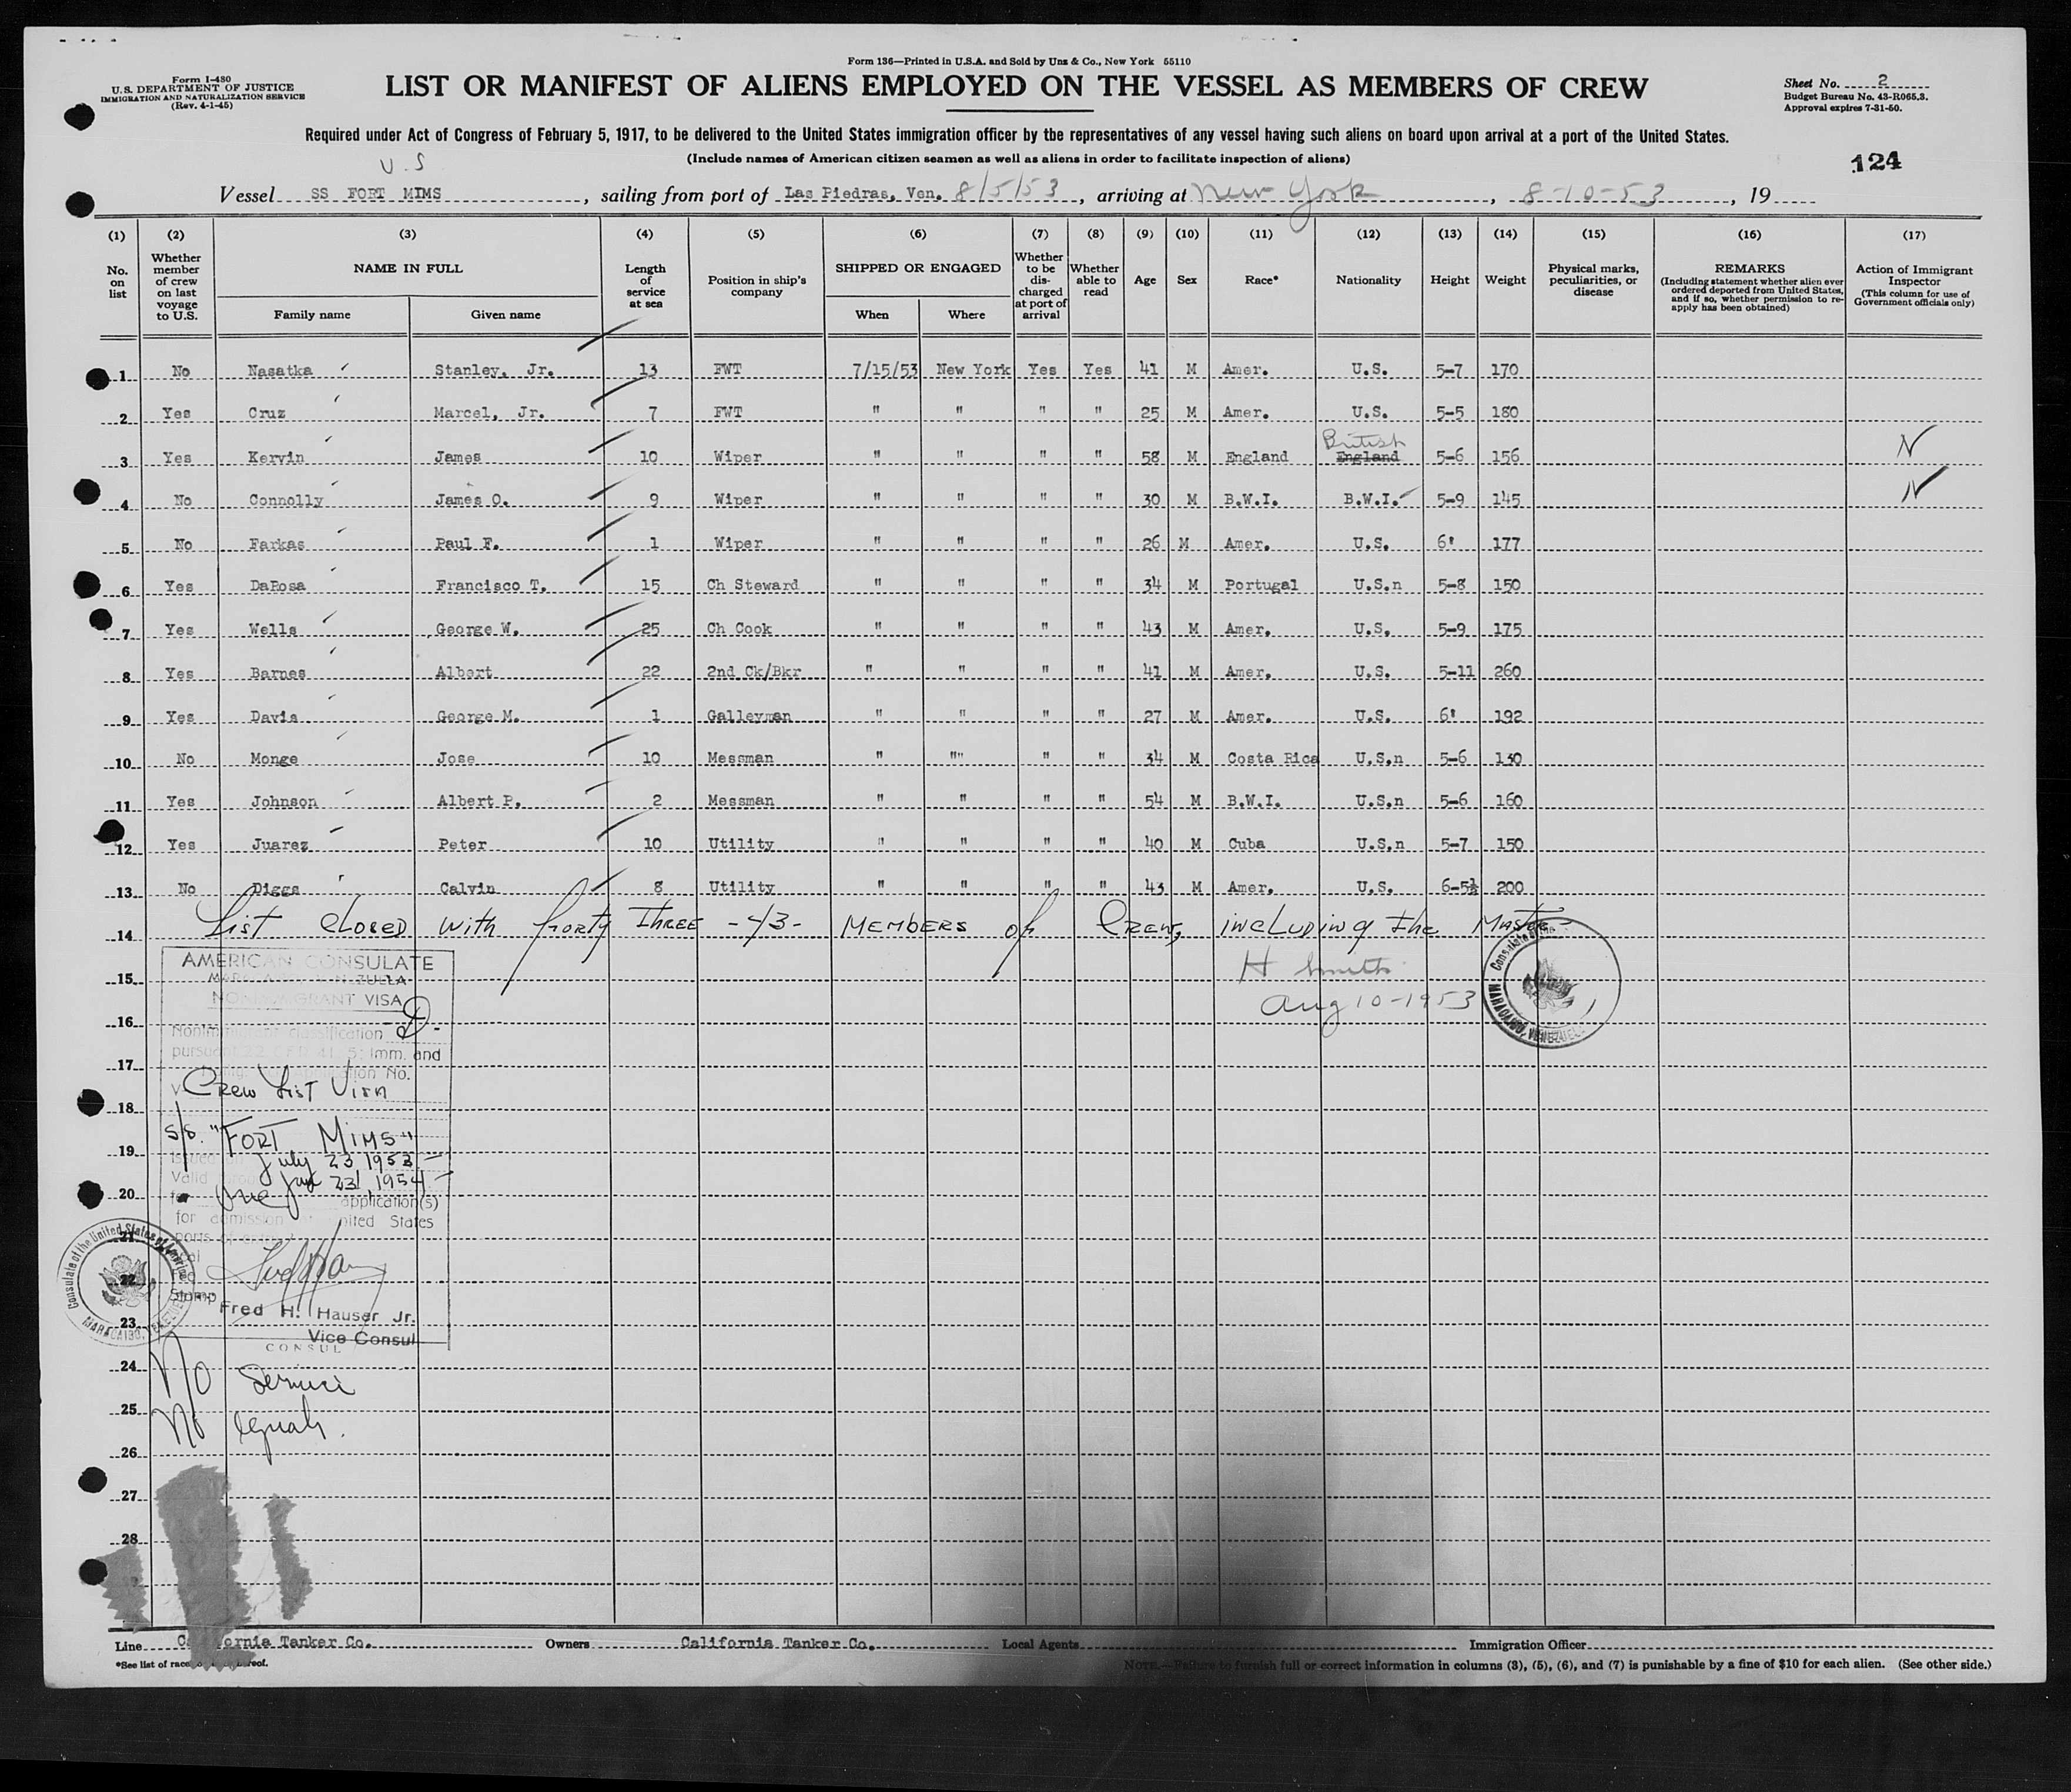 Form 136—Printed in U.S.A. and Sold by Unz & Co., New York 55110
Form I-480
U.S. DEPARTMENT OF JUSTICE
IMMIGRATION AND NATURALIZATION SERVICE
(Rev. 4-1-45)
LIST OR MANIFEST OF ALIENS EMPLOYED ON THE VESSEL AS MEMBERS OF CREW
Sheet No. 2
Budget Bureau No. 43-R065.3.
Approval expires 7-31-50.
Required under Act of Congress of February 5, 1917, to be delivered to the United States immigration officer by the representatives of any vessel having such aliens on board upon arrival at a port of the United States.
(Include names of American citizen seamen as well as aliens in order to facilitate inspection of aliens)
124
U.S
Vessel SS FORT MIMS, sailing from port of Las Piedras, Ven. 8/5/53, arriving at New York, 8-10-53, 19
(1) (2) (3) (4) (5) (6) (7) (8) (9) (10) (11) (12) (13) (14) (15) (16) (17)
No. on list
Whether member of crew on last voyage to U.S.
NAME IN FULL
Family name Given name
Length of service at sea
Position in ship's company
SHIPPED OR ENGAGED
When Where
Whether to be discharged at port of arrival
Whether able to read
Age
Sex
Race*
Nationality
Height
Weight
Physical marks, peculiarities, or disease
REMARKS
(Including statement whether alien ever ordered deported from United States, and if so, whether permission to reapply has been obtained)
Action of Immigrant Inspector
(This column for use of Government officials only)
1 No Nasatka Stanley, Jr. 13 FWT 7/15/53 New York Yes Yes 41 M Amer. U.S. 5-7 170
2 Yes Cruz Marcel, Jr. 7 FWT " " " " 25 M Amer. U.S. 5-5 180
British
3 Yes Kervin James 10 Wiper " " " " 58 M England England 5-6 156 N
4 No Connolly James O. 9 Wiper " " " " 30 M B.W.I. B.W.I. 5-9 145 N
5 No Farkas Paul F. 1 Wiper " " " " 26 M Amer. U.S. 6' 177
6 Yes DaRosa Francisco T. 15 Ch Steward " " " " 34 M Portugal U.S.n 5-8 150
7 Yes Wells George W. 25 Ch Cook " " " " 43 M Amer. U.S. 5-9 175
8 Yes Barnes Albert 22 2nd Ck/Bkr " " " " 41 M Amer. U.S. 5-11 260
9 Yes Davis George M. 1 Galleyman " " " " 27 M Amer. U.S. 6' 192
10 No Monge Jose 10 Messman " "" " " 34 M Costa Rica U.S.n 5-6 130
11 Yes Johnson Albert P. 2 Messman " " " " 54 M B.W.I. U.S.n 5-6 160
12 Yes Juarez Peter 10 Utility " " " " 40 M Cuba U.S.n 5-7 150
13 No Diggs Calvin 8 Utility " " " " 43 M Amer. U.S. 6-5½ 200
List closed with forty three -43- members of crew, including the Master
14
AMERICAN CONSULATE
15
H Smith
NONIMMIGRANT VISA
Aug 10-1953
16
Nonimmigrant classification D-
pursuant 22 CFR 41.5; Imm. and
17
Crew List Visa
18
S/S. "FORT MIMS"
19
Issued on July 23 1953
Valid Jan 23, 1954
20
for One application(s)
for admission at United States
ports of entry
21
22
Stamp
Fred H. Hauser Jr.
23
Vice Consul
CONSUL
Consulate of the United States of America
MARACAIBO, VENEZUELA
Consulate of the
MARACAIBO, VENEZUELA
24
No
25
No
26
27
28
Line California Tanker Co. Owners California Tanker Co. Local Agents Immigration Officer
*See list of races hereof.
NOTE.—Failure to furnish full or correct information in columns (3), (5), (6), and (7) is punishable by a fine of $10 for each alien. (See other side.)